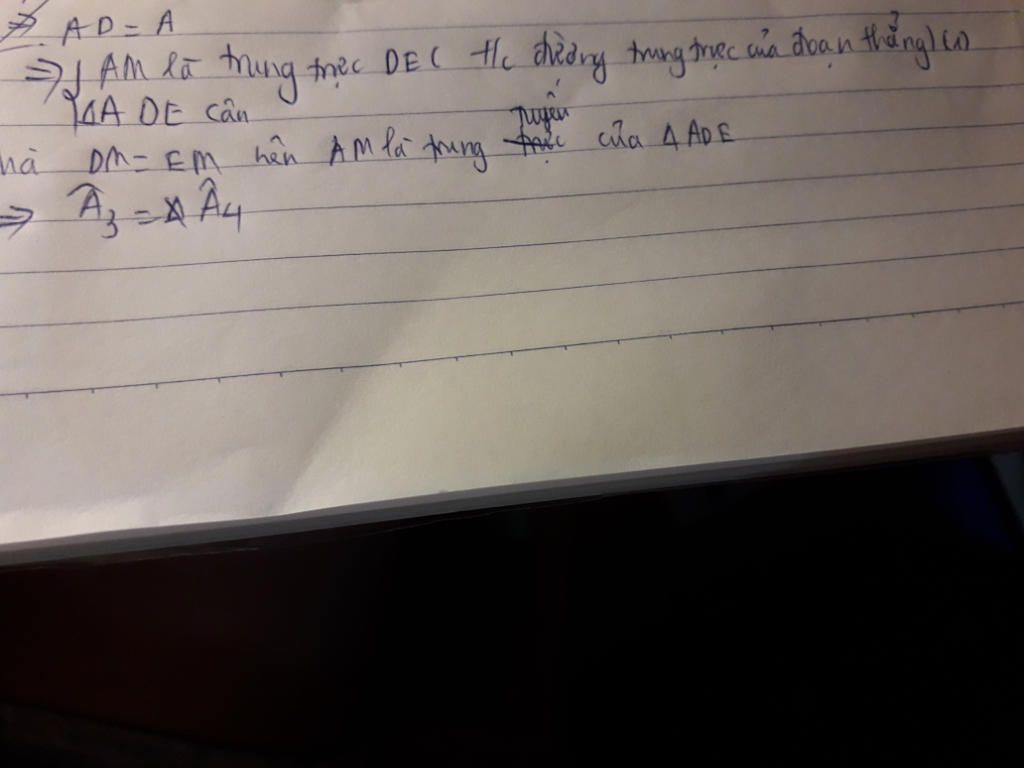 => AD = A
=> { AM là trung trực DE ( t/c đường trung trực của đoạn thẳng) (1)
ΔADE cân
mà DM = EM nên AM là trung tuyến của ΔADE
=> Â3 = Â4